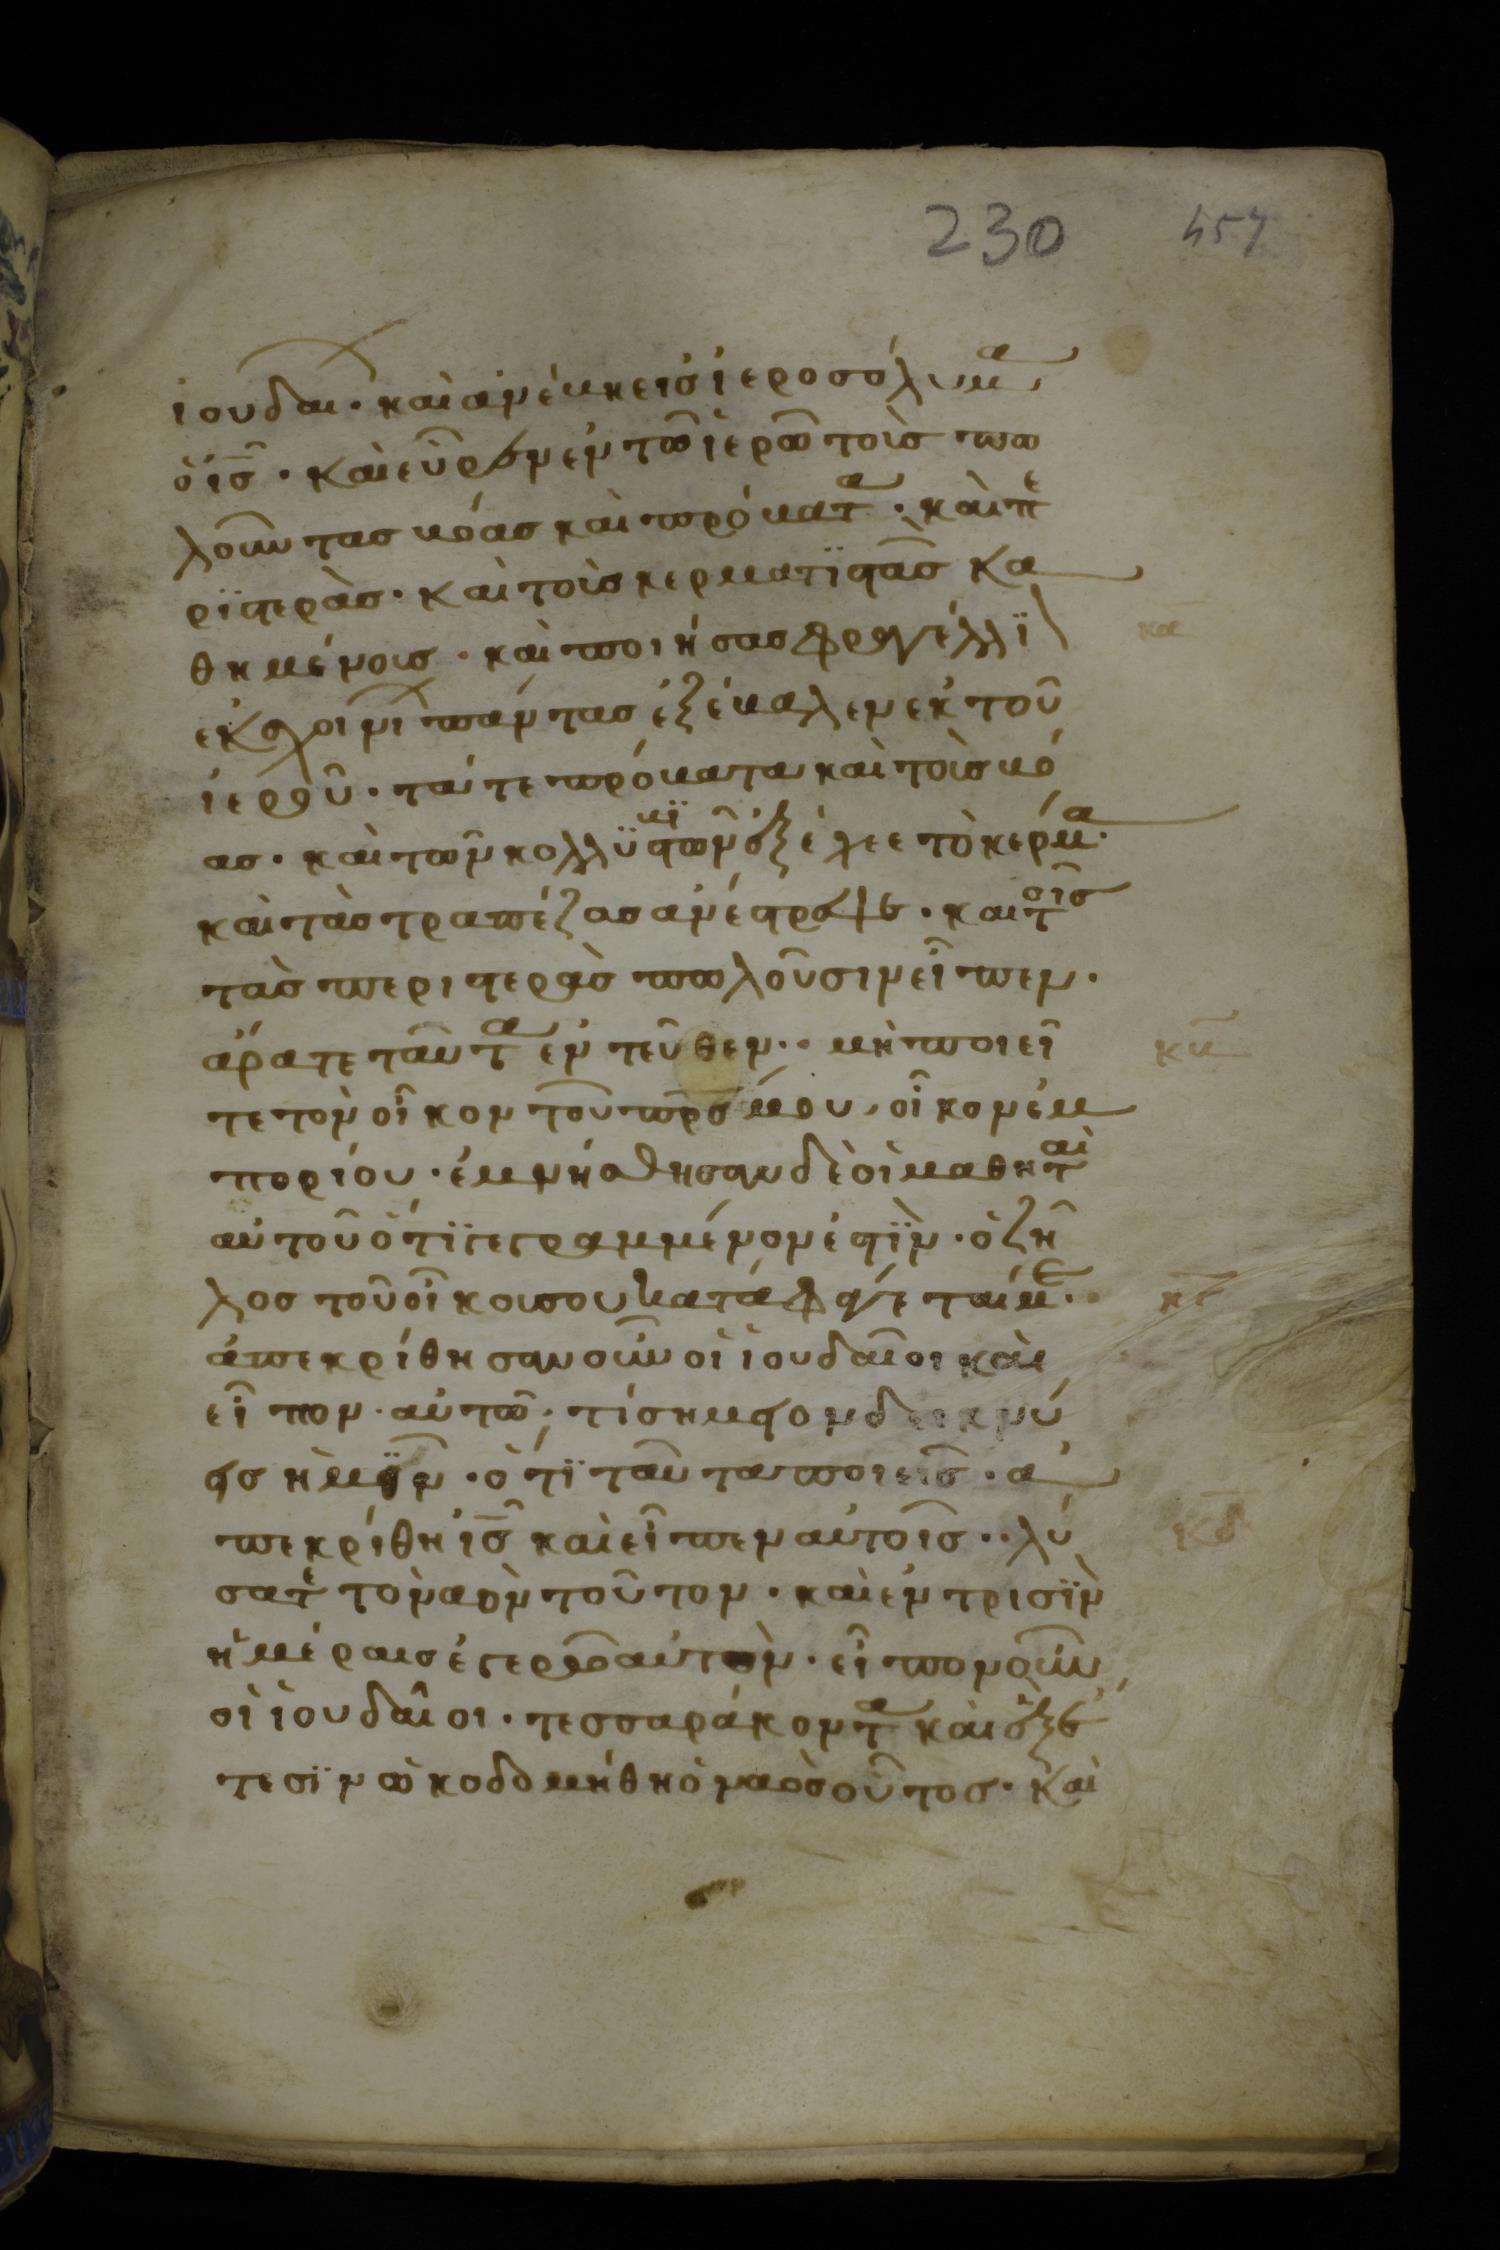 230 457
ἰουδαι · καὶ ἀνέβη εἰς ἱεροσόλυμα
ὁ ἰς · καὶ εὗρεν ἐν τῶ ἱερῶ τοὺς πω
λοῦντας βόας καὶ πρόβατα · καὶ πε
ρϊστερὰς · καὶ τοὺς κερματϊστὰς κα
θημένους · καὶ ποιήσας φραγέλλϊ
κα
ἐκ σχοινι πάντας ἐξέβαλεν ἐκ τοῦ
ἱεροῦ · τά τε πρόβατα καὶ τοὺς βό
ας · καὶ τῶν κολλϋβϊστῶν ἐξέχεε τὸ κέρμα ·
καὶ τὰς τραπέζας ἀνέστρεψε · καὶ τοῖς
τὰς περιστερὰς πωλοῦσιν εἶπεν ·
ἄρατε ταῦτα ἐντεῦθεν · · μὴ ποιεῖ
κβ
τε τὸν οἶκον τοῦ πρς μου, οἶκον ἐμ
πορίου · ἐμνήσθησαν δὲ οἱ μαθηταὶ
αὐτοῦ ὅτϊ γεγραμμένον ἐστϊν · ὁ ζῆ
λος τοῦ οἴκου σου κατάφάγεταί με · ·
κγ
ἀπεκρίθησαν οὖν οἱ ἰουδαῖοι καὶ
εἶπον · αὐτῶ, τί σημεῖον δεικνύ
εις ἡμϊν · ὅτϊ ταῦτα ποιεῖς · ἀ
πεκρίθη ἰς καὶ εἶπεν αὐτοῖς · · λύ
κδ
σατε τὸν ναὸν τοῦτον · καὶ ἐν τρισϊν
ἡμέραις ἐγερῶ αὐτὸν · εἶπον οὖν
οἱ ἰουδαῖοι · τεσσαράκοντα καὶ ἓξ ἔ
τεσϊν ὠκοδομήθη ὁ ναὸς οὗτος · καὶ